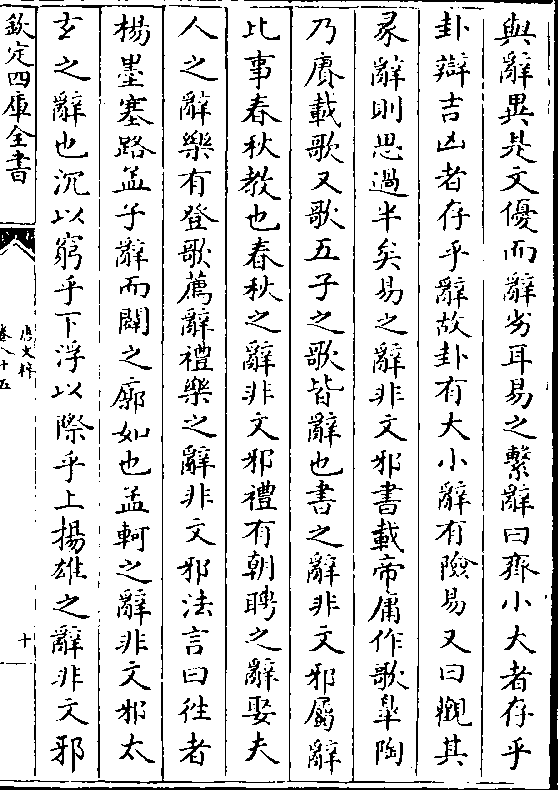 與辭異是文優而辭劣耳易之繫辭曰齊小大者存乎
卦辯吉凶者存乎辭故卦有大小辭有險易又曰觀其
彖辭則思過半矣易之辭非文邪書載帝庸作歌臯陶
乃賡載歌又歌五子之歌皆辭也書之辭非文邪屬辭
比事春秋教也春秋之辭非文邪禮有朝聘之辭娶夫
人之辭樂有登歌薦辭禮樂之辭非文邪法言曰徃者
楊墨塞路孟子辭而闢之廓如也孟軻之辭非文邪太
玄之辭也沉以窮乎下浮以際乎上揚雄之辭非文邪
欽定四庫全書
唐文粹
卷八十五
十